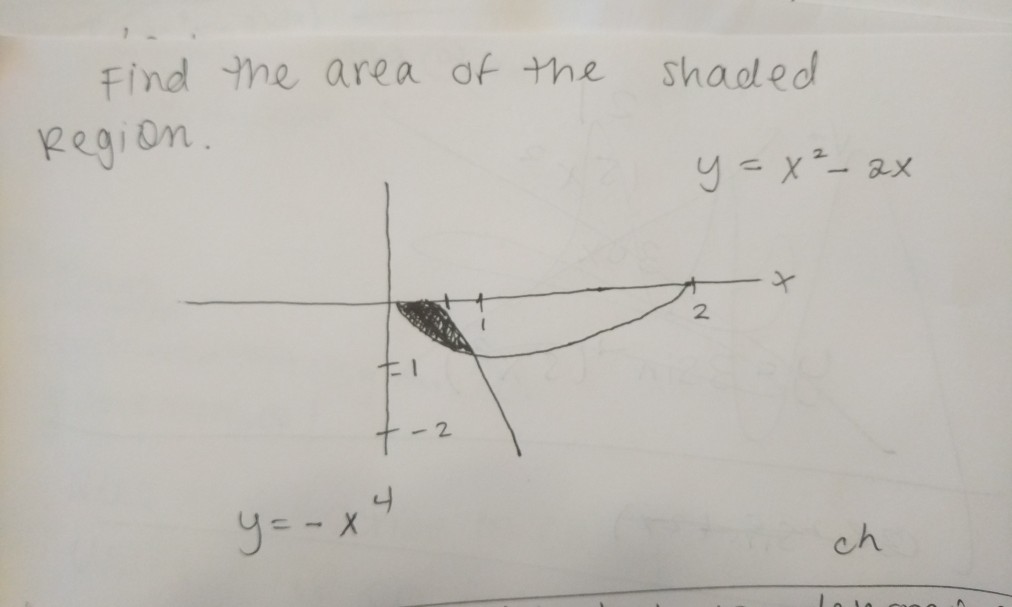 Find the area of the shaded
Region.
y = x² - 2x
x
1
2
-1
-2
y = - x⁴
ch